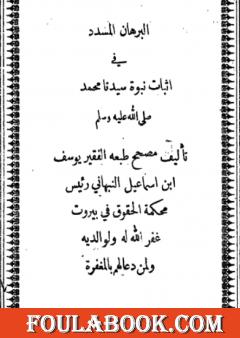 البرهان المسدد
في
اثبات نبوة سيدنا محمد
صلى الله عليه وسلم
تأليف مصحح طبعه الفقير يوسف
ابن اسماعيل النبهاني رئيس
محكمة الحقوق في بيروت
غفر الله له ولوالديه
ولمن دعا لهم بالمغفرة
FOULABOOK.COM